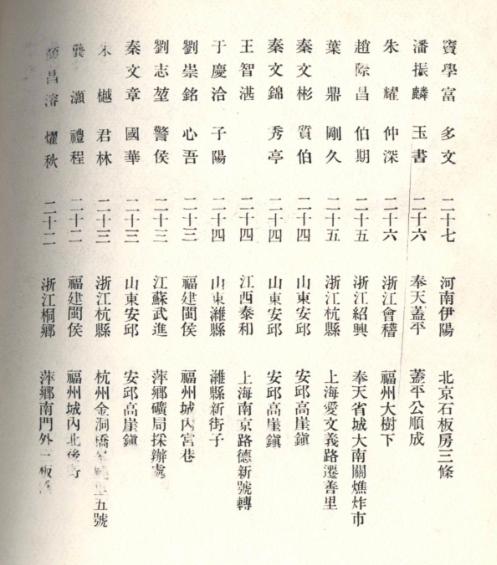 竇學富 多文 二十七 河南伊陽 北京石板房三條
潘振麟 玉書 二十六 奉天蓋平 蓋平公順成
朱 耀 仲深 二十六 浙江會稽 福州大樹下
趙際昌 伯期 二十五 浙江紹興 奉天省城大南關燋炸市
葉 鼎 剛久 二十五 浙江杭縣 上海愛文義路遷善里
秦文彬 質伯 二十四 山東安邱 安邱高崖鎮
秦文錦 秀亭 二十四 山東安邱 安邱高崖鎮
王智湛 二十四 江西泰和 上海南京路德新號轉
于慶洽 子陽 二十四 山東濰縣 濰縣新街子
劉崇銘 心吾 二十三 福建閩侯 福州城內宮巷
劉志堃 警侯 二十三 江蘇武進 萍鄉礦局採辦處
秦文章 國華 二十三 山東安邱 安邱高崖鎮
朱 樾 君林 二十三 浙江杭縣 杭州金洞橋 五號
龔 灝 禮程 二十二 福建閩侯 福州城內北後
昌溶 燿秋 二十二 浙江桐鄉 萍鄉南門外